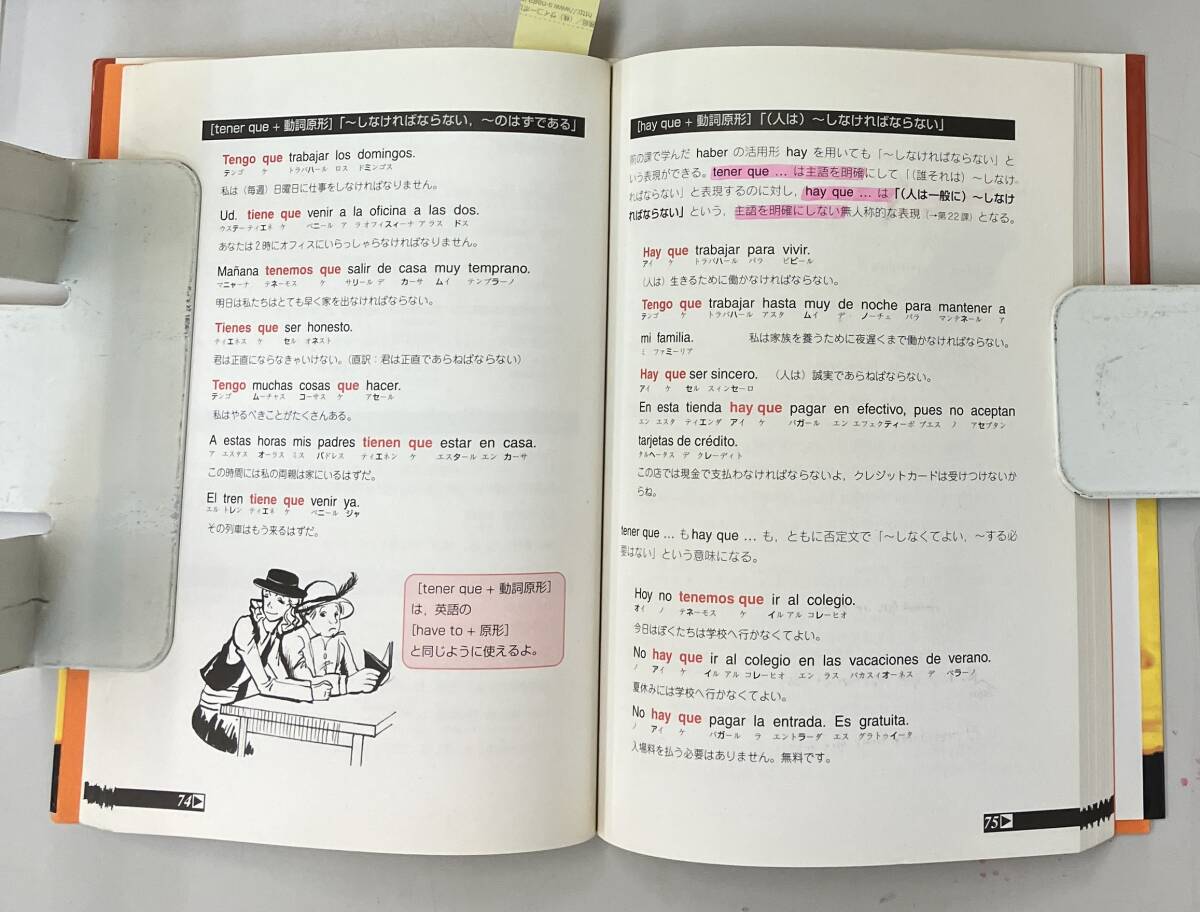 [tener que + 動詞原形]「～しなければならない，～のはずである」
Tengo que trabajar los domingos.
テンゴ ケ トラバハール ロス ドミンゴス
私は（毎週）日曜日に仕事をしなければなりません。
Ud. tiene que venir a la oficina a las dos.
ウステー ティエネ ケ ベニール ア ラ オフィスィーナ ア ラス ドス
あなたは2時にオフィスにいらっしゃらなければなりません。
Mañana tenemos que salir de casa muy temprano.
マニャーナ テネーモス ケ サリール デ カーサ ムイ テンプラーノ
明日は私たちはとても早く家を出なければならない。
Tienes que ser honesto.
ティエネス ケ セル オネスト
君は正直にならなきゃいけない。（直訳：君は正直であらねばならない）
Tengo muchas cosas que hacer.
テンゴ ムーチャス コーサス ケ アセール
私はやるべきことがたくさんある。
A estas horas mis padres tienen que estar en casa.
ア エスタス オーラス ミス パドレス ティエネン ケ エスタール エン カーサ
この時間には私の両親は家にいるはずだ。
El tren tiene que venir ya.
エル トレン ティエネ ケ ベニール ジャ
その列車はもう来るはずだ。
[tener que + 動詞原形]
は，英語の
[have to + 原形]
と同じように使えるよ。
74
[hay que + 動詞原形]「（人は）～しなければならない」
前の課で学んだ haber の活用形 hay を用いても「～しなければならない」と
いう表現ができる。tener que … は主語を明確にして「（誰それは）～しなけ
ればならない」と表現するのに対し，hay que … は「（人は一般に）～しなけ
ればならない」という，主語を明確にしない無人称的な表現（→第22課）となる。
Hay que trabajar para vivir.
アイ ケ トラバハール パラ ビビール
（人は）生きるために働かなければならない。
Tengo que trabajar hasta muy de noche para mantener a
テンゴ ケ トラバハール アスタ ムイ デ ノーチェ パラ マンテネール ア
mi familia. 私は家族を養うために夜遅くまで働かなければならない。
ミ ファミーリア
Hay que ser sincero. （人は）誠実であらねばならない。
アイ ケ セル スィンセーロ
En esta tienda hay que pagar en efectivo, pues no aceptan
エン エスタ ティエンダ アイ ケ パガール エン エフェクティーボ プエス ノ アセプタン
tarjetas de crédito.
タルヘータス デ クレーディト
この店では現金で支払わなければならないよ，クレジットカードは受けつけないか
らね。
tener que … も hay que … も，ともに否定文で「～しなくてよい，～する必
要はない」という意味になる。
Hoy no tenemos que ir al colegio.
オイ ノ テネーモス ケ イル アル コレーヒオ
今日はぼくたちは学校へ行かなくてよい。
No hay que ir al colegio en las vacaciones de verano.
ノ アイ ケ イル アル コレーヒオ エン ラス バカスィオーネス デ ベラーノ
夏休みには学校へ行かなくてよい。
No hay que pagar la entrada. Es gratuita.
ノ アイ ケ パガール ラ エントラーダ エス グラトゥイータ
入場料を払う必要はありません。無料です。
75